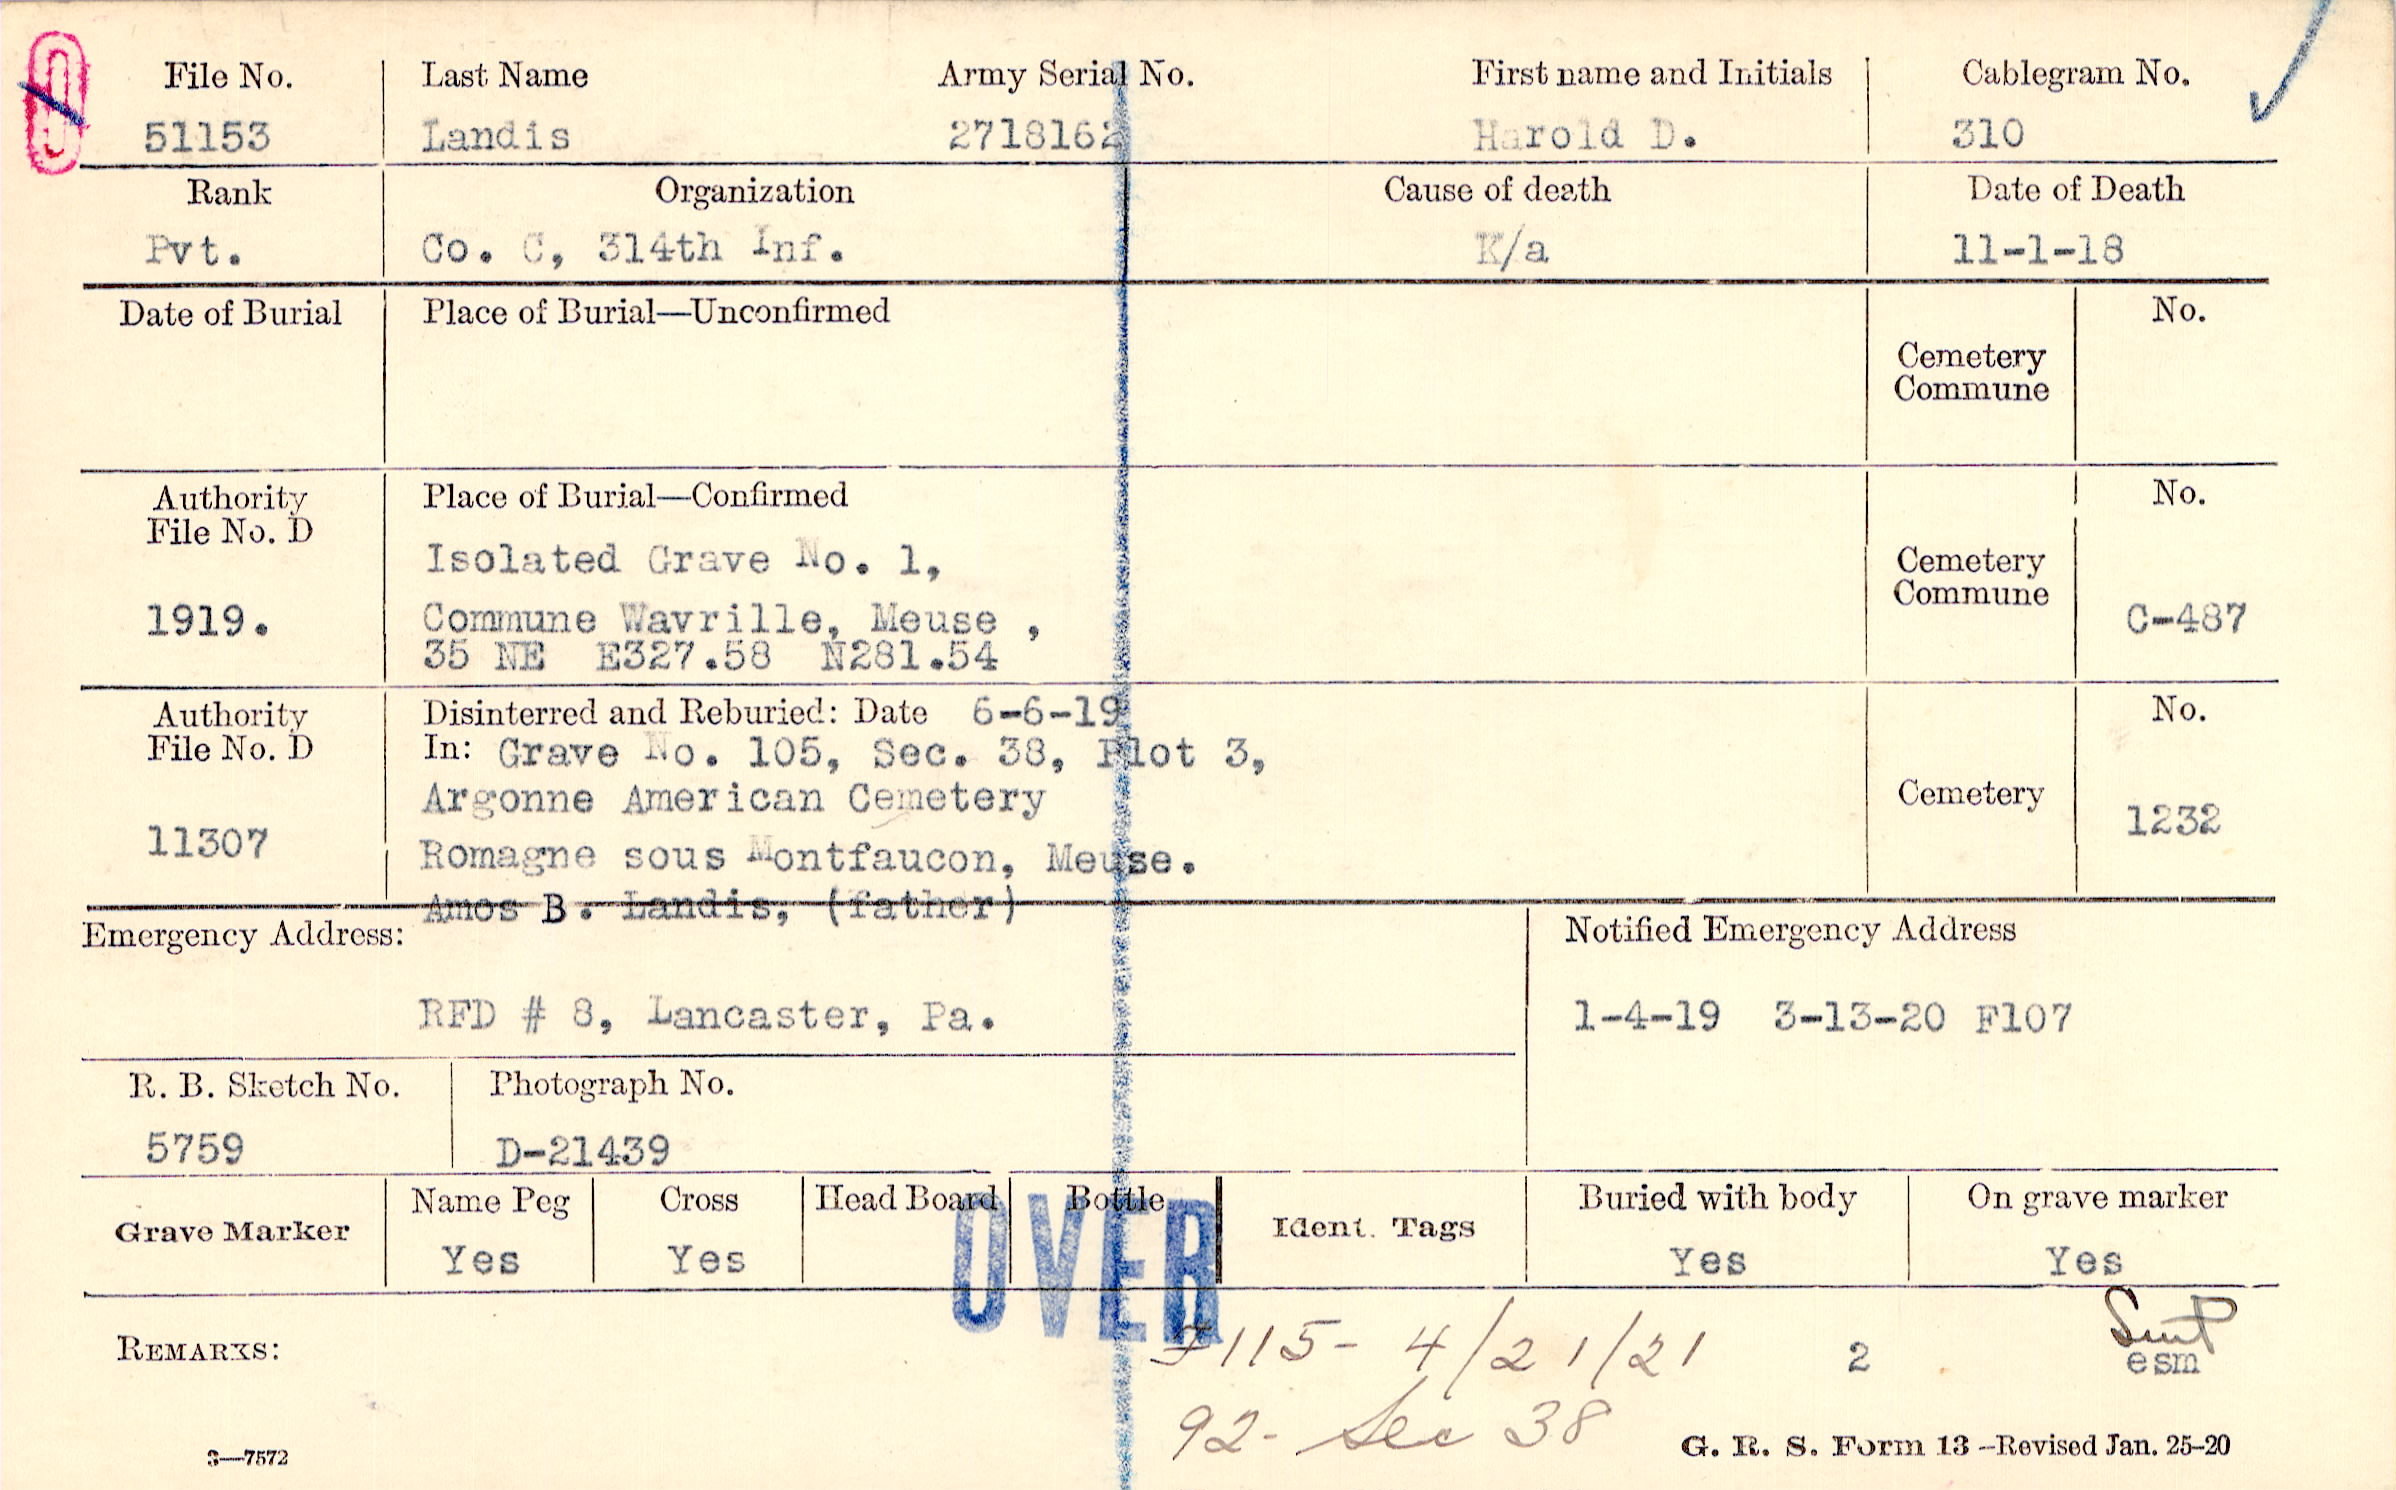 File No. Last Name Army Serial No. First name and Initials Cablegram No.
51153 Landis 2718162 Harold D. 310
Rank Organization Cause of death Date of Death
Pvt. Co. C, 314th Inf. K/a 11-1-18
Date of Burial Place of Burial—Unconfirmed No.
Cemetery
Commune
Authority Place of Burial—Confirmed No.
File No. D
Isolated Grave No. 1,
Cemetery
Commune
1919. Commune Wavrille, Meuse , C-487
35 NE E327.58 N281.54
Authority Disinterred and Reburied: Date 6-6-19 No.
File No. D In: Grave No. 105, Sec. 38, Plot 3,
Argonne American Cemetery Cemetery
11307 1232
Romagne sous Montfaucon, Meuse.
Amos B. Landis, (father)
Emergency Address: Notified Emergency Address
RFD # 8, Lancaster, Pa. 1-4-19 3-13-20 F107
R. B. Sketch No. Photograph No.
5759 D-21439
Grave Marker Name Peg Cross Head Board Bottle Ident. Tags Buried with body On grave marker
Yes Yes Yes Yes
OVER
REMARKS: F115- 4/21/21 2
esm
92- Sec 38
3—7572 G. R. S. Form 13—Revised Jan. 25-20